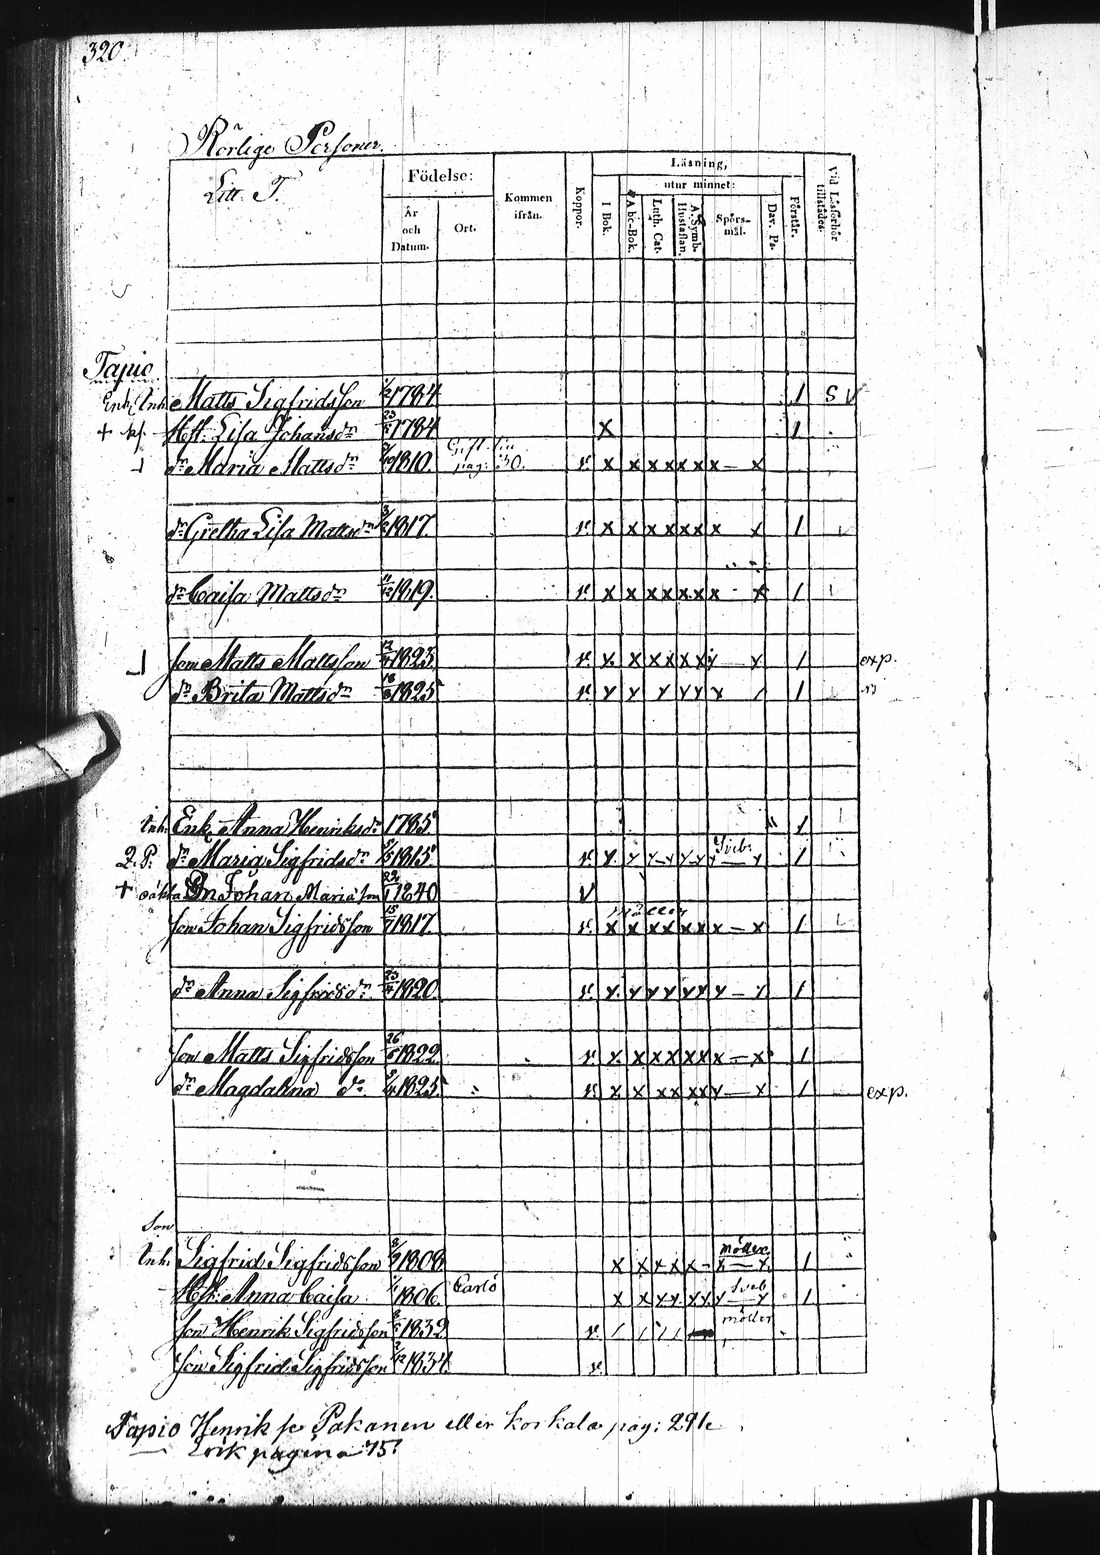 320
Rörlige Personer.
Litt. T.
Födelse:
År och Datum.
Ort.
Kommen ifrån.
Koppor.
Läsning,
utur minnet:
I Bok.
Abc-Bok.
Luth. Cat.
Hustaflan.
A. Symb.
Spörsmål.
Dav. Ps.
Förstår.
Vid Läsförhör tillstädes:
Tapio
Enk. Inh. Matts Sigfridsson 1/2 1784 1 S
+ Hst. Lisa Johansdr 1784 X 1
dr Maria Mattsdr 1810. Gift pag: 30. v. x x x x x x x — x
dr Gretha Lisa Mattsdr 3/2 1817. v. x x x x x x x x 1
dr Caisa Mattsdr 11/12 1819. v. x x x x x x x x 1
son Matts Mattsson 12/4 1823. v. x x x x x x y — y 1 exp.
dr Brita Mattsdr 18/3 1825 v. y y y y y x 1
Inh. Enk. Anna Henriksdr 1785 1
Q. P. dr Maria Sigfridsdr 5/5 1815 v. y y y y y y y — y 1
+ oäkta Sn Johan Mariæson 1840 V
möller
son Johan Sigfridsson 15/7 1817. v. x x x x x x x — x 1
dr Anna Sigfridsdr 23/4 1820. v. y y y y y y y — y 1
son Matts Sigfridsson 26/6 1822 v. x x x x x x x — x 1
dr Magdalena do 5/4 1825. v. x x x x x x y — x 1 exp.
Son
Inh. Sigfrid Sigfridsson 8/7 1808 möller x x x x x - x — x 1
Hst. Anna Caisa 1806. Carlö x x y y x x y — y 1
möller
son Henrik Sigfridsson 1832 v. / / / /
son Sigfrid Sigfridsson 2/12 1834. v.
Tapio Henrik se Pakanen eller Korkala pag: 291
Erik pagina 75.